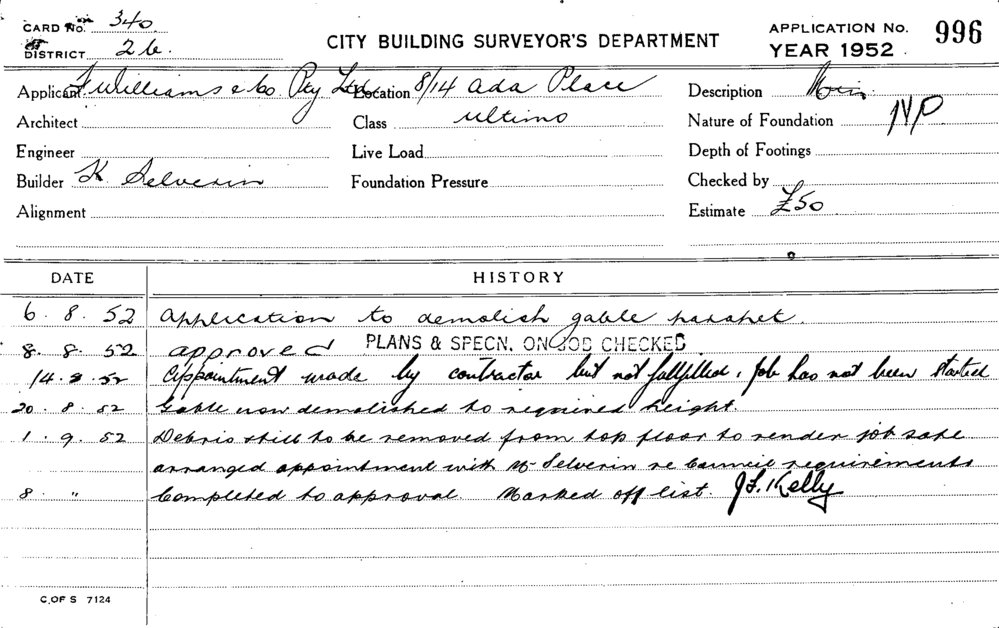 CARD No. 340.
DISTRICT 26.
CITY BUILDING SURVEYOR'S DEPARTMENT
APPLICATION No. 996
YEAR 1952
Applicant F Williams & Co Pty Ltd Location 8/14 Ada Place Description
Architect Class Ultimo Nature of Foundation NP
Engineer Live Load Depth of Footings
Builder K. Selverin Foundation Pressure Checked by
Alignment Estimate £50
DATE HISTORY
6. 8. 52 Application to demolish gable parapet.
8. 8. 52 approved PLANS & SPECN. ON JOB CHECKED
14. 8. 52 Appointment made by contractor but not fullfilled, Job has not been started
20. 8. 52 Gable now demolished to required height.
1. 9. 52 Debris still to be removed from top floor to render job safe
arranged appointment with Mr Selverin re Council requirements
8. " Completed to approval. Marked off list. J.L. Kelly
C. OF S 7124